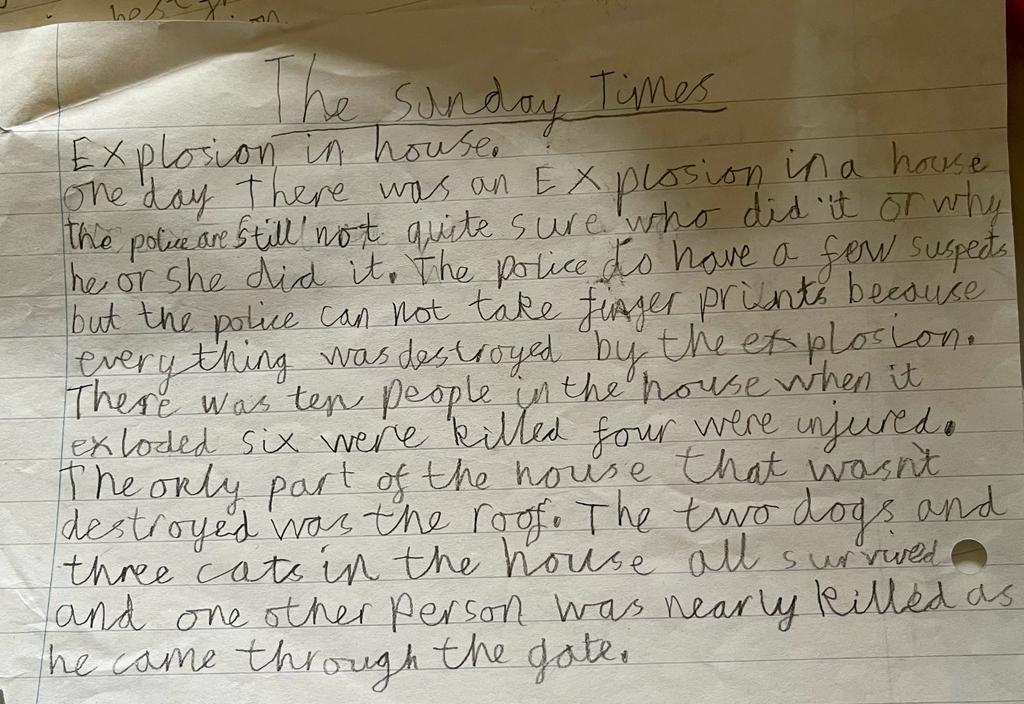 The Sunday Times
Explosion in house.
one day there was an Explosion in a house
the police are still not quite sure who did it or why
he or she did it. The police do have a few suspects
but the police can not take finger prints because
every thing was destroyed by the explosion.
There was ten people in the house when it
exloded six were killed four were injured.
The only part of the house that wasn't
destroyed was the roof. The two dogs and
three cats in the house all survived
and one other person was nearly killed as
he came through the gate.